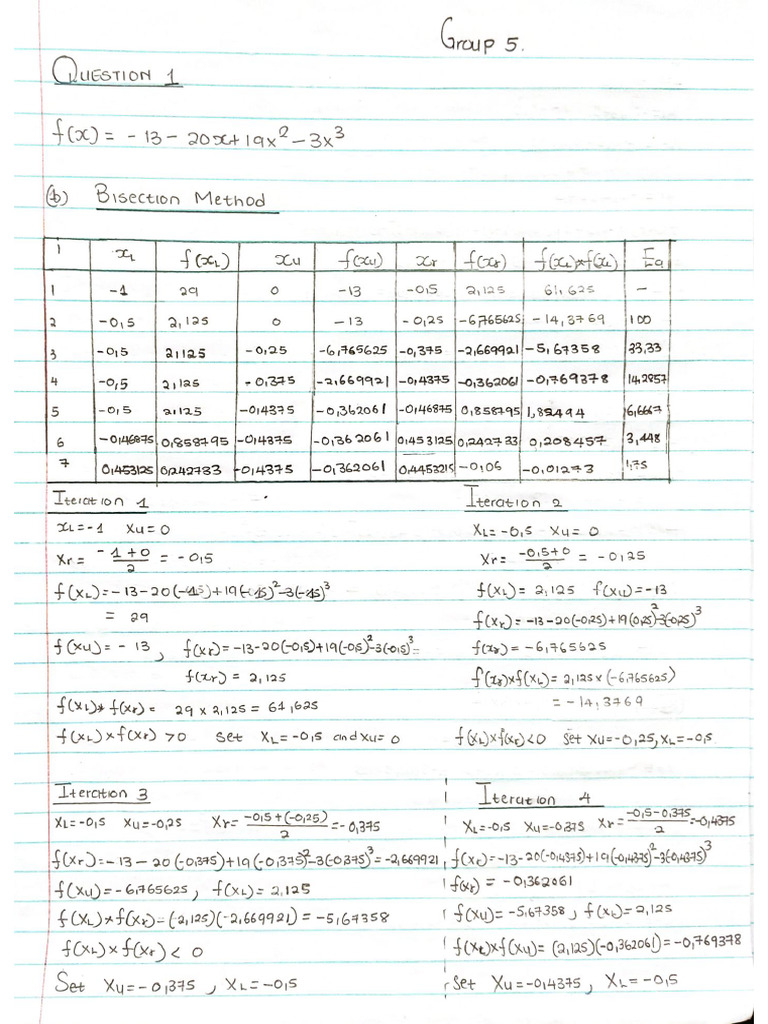 Group 5.
QUESTION 1
f(x) = -13 - 20x + 19x² - 3x³
(b) Bisection Method
i xL f(xL) xu f(xu) xr f(xr) f(xL)*f(xr) Ea
1 -1 29 0 -13 -0,5 2,125 61,625 -
2 -0,5 2,125 0 -13 -0,25 -6,765625 -14,3769 100
3 -0,5 2,125 -0,25 -6,765625 -0,375 -2,669921 -5,67358 33,33
4 -0,5 2,125 -0,375 -2,669921 -0,4375 -0,362061 -0,769378 14,2857
5 -0,5 2,125 -0,4375 -0,362061 -0,46875 0,858795 1,82494 6,6667
6 -0,46875 0,858795 -0,4375 -0,362061 0,453125 0,242733 0,208457 3,448
7 0,453125 0,242733 -0,4375 -0,362061 0,4453215 -0,06 -0,01273 1,75
Iteration 1
xL = -1 Xu = 0
Xr = (-1+0)/2 = -0,5
f(xL) = -13-20(-1)+19(-1)²-3(-1)³
= 29
f(xu) = -13, f(xr) = -13-20(-0,5)+19(-0,5)²-3(-0,5)³=
f(xr) = 2,125
f(xL)* f(xr) = 29 x 2,125 = 61,625
f(xL) x f(xr) >0 Set XL = -0,5 and Xu = 0
Iteration 2
XL = -0,5 Xu = 0
Xr = (-0,5+0)/2 = -0,25
f(xL) = 2,125 f(xu) = -13
f(xr) = -13-20(-0,25)+19(0,25)²-3(-0,25)³
f(xr) = -6,765625
f(xr)xf(xL) = 2,125x(-6,765625)
= -14,3769
f(xL)xf(xr)<0 Set Xu = -0,25, XL = -0,5
Iteration 3
XL = -0,5 Xu = -0,25 Xr = (-0,5+(-0,25))/2 = -0,375
f(xr) = -13-20(-0,375)+19(-0,375)²-3(-0,375)³ = -2,669921
f(xu) = -6,765625, f(xL) = 2,125
f(xL)xf(xr) = (2,125)(-2,669921) = -5,67358
f(xL)xf(xr) < 0
Set Xu = -0,375, XL = -0,5
Iteration 4
XL = -0,5 Xu = -0,375 Xr = (-0,5-0,375)/2 = -0,4375
f(xr) = -13-20(-0,4375)+19(-0,4375)²-3(-0,4375)³
f(xr) = -0,362061
f(xu) = -5,67358, f(xL) = 2,125
f(xL)xf(xu) = (2,125)(-0,362061) = -0,769378
Set Xu = -0,4375, XL = -0,5